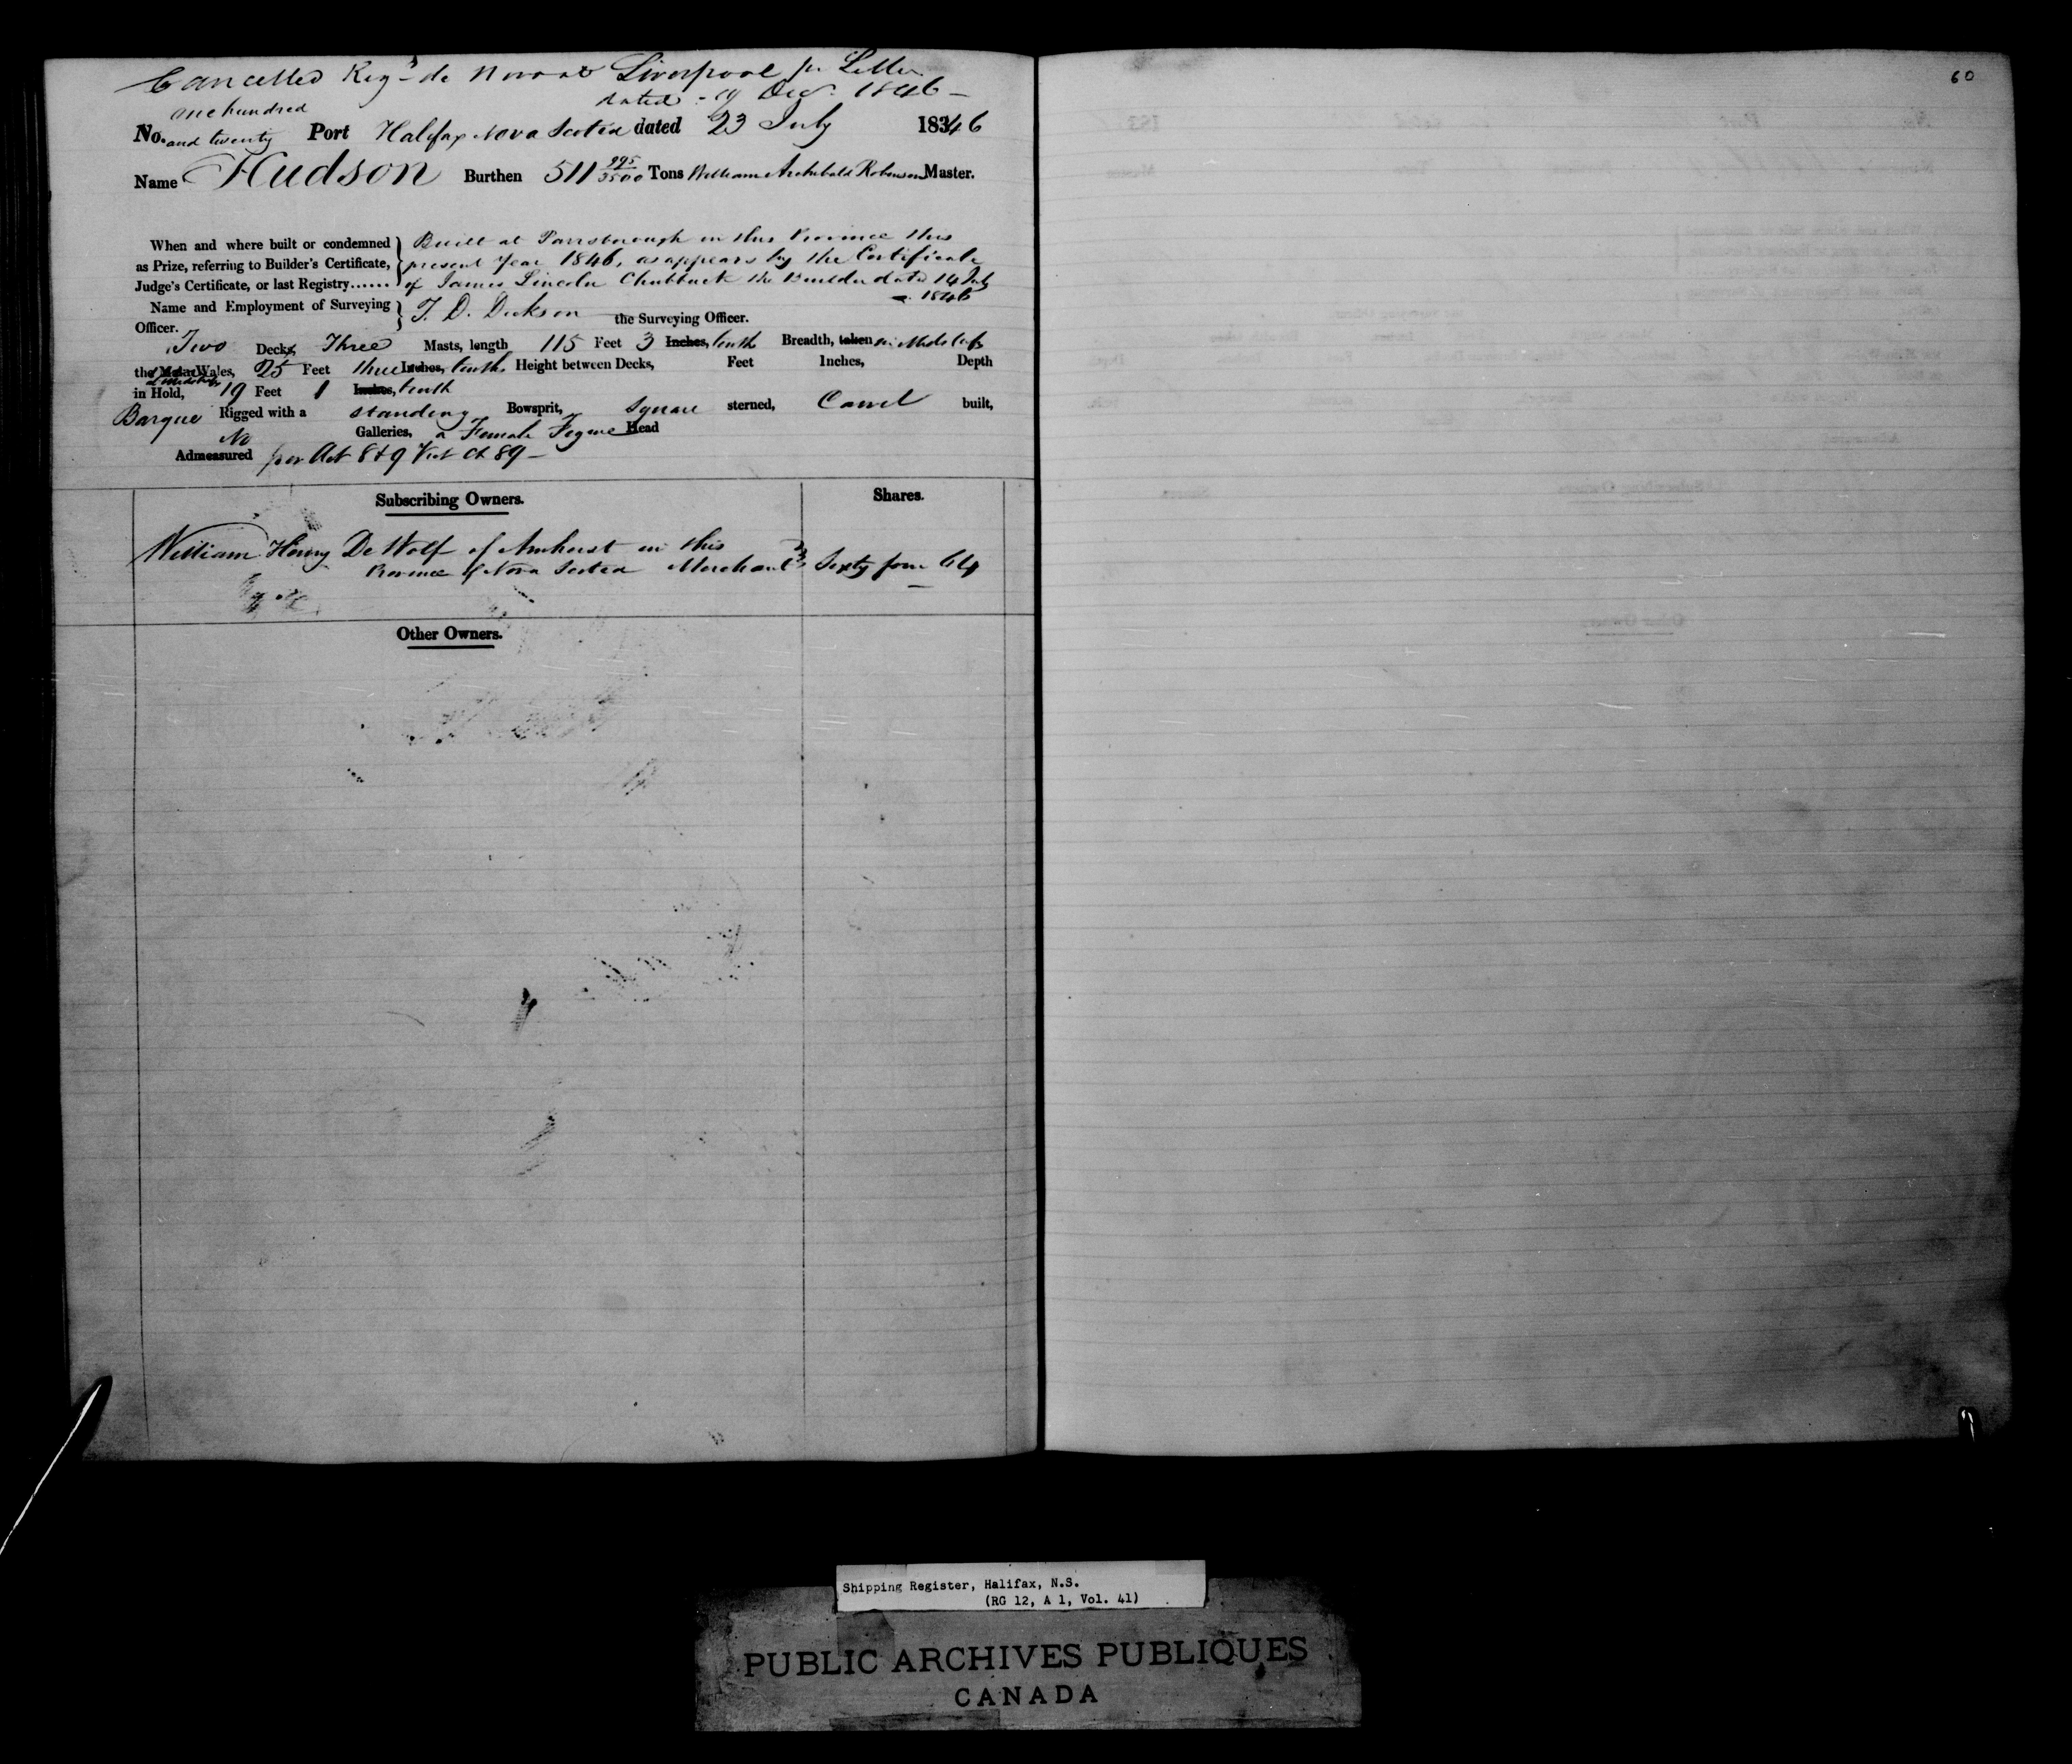 Cancelled Regd de Novo at Liverpool pr Letter
dated 19 Decr 1846
60
one hundred
No. and twenty Port Halifax Nova Scotia dated 23 July 1846
Name Hudson Burthen 511 995/3500 Tons William Archibald Robinson Master.
When and where built or condemned Built at Parrsborough in this Province this
as Prize, referring to Builder's Certificate, present Year 1846, as appears by the Certificate
Judge's Certificate, or last Registry...... of James Lincoln Chubbuck the Builder dated 14 July
1846
Name and Employment of Surveying T. D. Dickson the Surveying Officer.
Officer.
Two Decks, Three Masts, length 115 Feet 3 Inches, tenth Breadth, taken in Midships
the Main Wales, 25 Feet three Inches, tenths Height between Decks, Feet Inches, Depth
at Midships
in Hold, 19 Feet 1 Inches, tenth
Barque Rigged with a standing Bowsprit, Square sterned, Carvel built,
No Galleries, a Female Figure Head
Admeasured per Act 8 & 9 Vict Ch 89
Subscribing Owners. Shares.
William Henry De Wolf of Amherst in this
Province of Nova Scotia Merchant Sixty four 64
Other Owners.
Shipping Register, Halifax, N.S.
(RG 12, A 1, Vol. 41)
PUBLIC ARCHIVES PUBLIQUES
CANADA